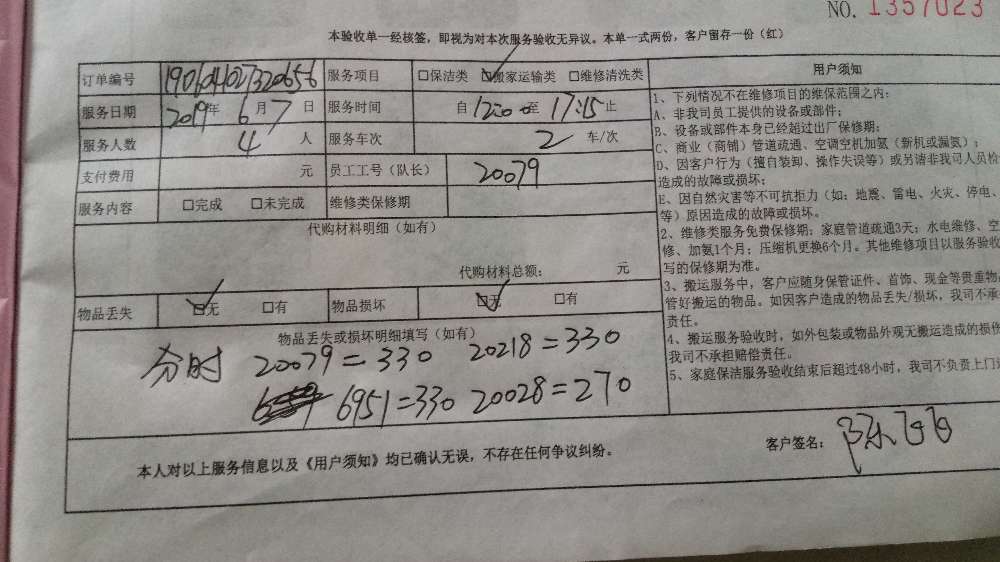 NO. 1357023
本验收单一经核签，即视为对本次服务验收无异议。本单一式两份，客户留存一份（红）
订单编号 190604027320656 服务项目 □保洁类 ☑搬家运输类 □维修清洗类
服务日期 2019年 6月 7日 服务时间 自 1230 至 17:15 止
服务人数 4 人 服务车次 2 车/次
支付费用 元 员工工号（队长） 20079
服务内容 □完成 □未完成 维修类保修期
代购材料明细（如有）
代购材料总额： 元
物品丢失 ☑无 □有 物品损坏 ☑无 □有
物品丢失或损坏明细填写（如有）
20079=330 20218=330
6951=330 20028=270
本人对以上服务信息以及《用户须知》均已确认无误，不存在任何争议纠纷。
客户签名：
用户须知
1、下列情况不在维修项目的维保范围之内：
A、非我司员工提供的设备或部件；
B、设备或部件本身已经超过出厂保修期；
C、商业（商铺）管道疏通、空调空机加氨（新机或漏氨）；
D、因客户行为（擅自装卸、操作失误等）或另请非我司人员检
造成的故障或损坏；
E、因自然灾害等不可抗拒力（如：地震、雷电、火灾、停电、
等）原因造成的故障或损坏。
2、维修类服务免费保修期：家庭管道疏通3天；水电维修、空
修、加氨1个月；压缩机更换6个月。其他维修项目以服务验收
写的保修期为准。
3、搬运服务中，客户应随身保管证件、首饰、现金等贵重物品
管好搬运的物品。如因客户造成的物品丢失/损坏，我司不承
责任。
4、搬运服务验收时，如外包装或物品外观无搬运造成的损伤
我司不承担赔偿责任。
5、家庭保洁服务验收结束后超过48小时，我司不负责上门